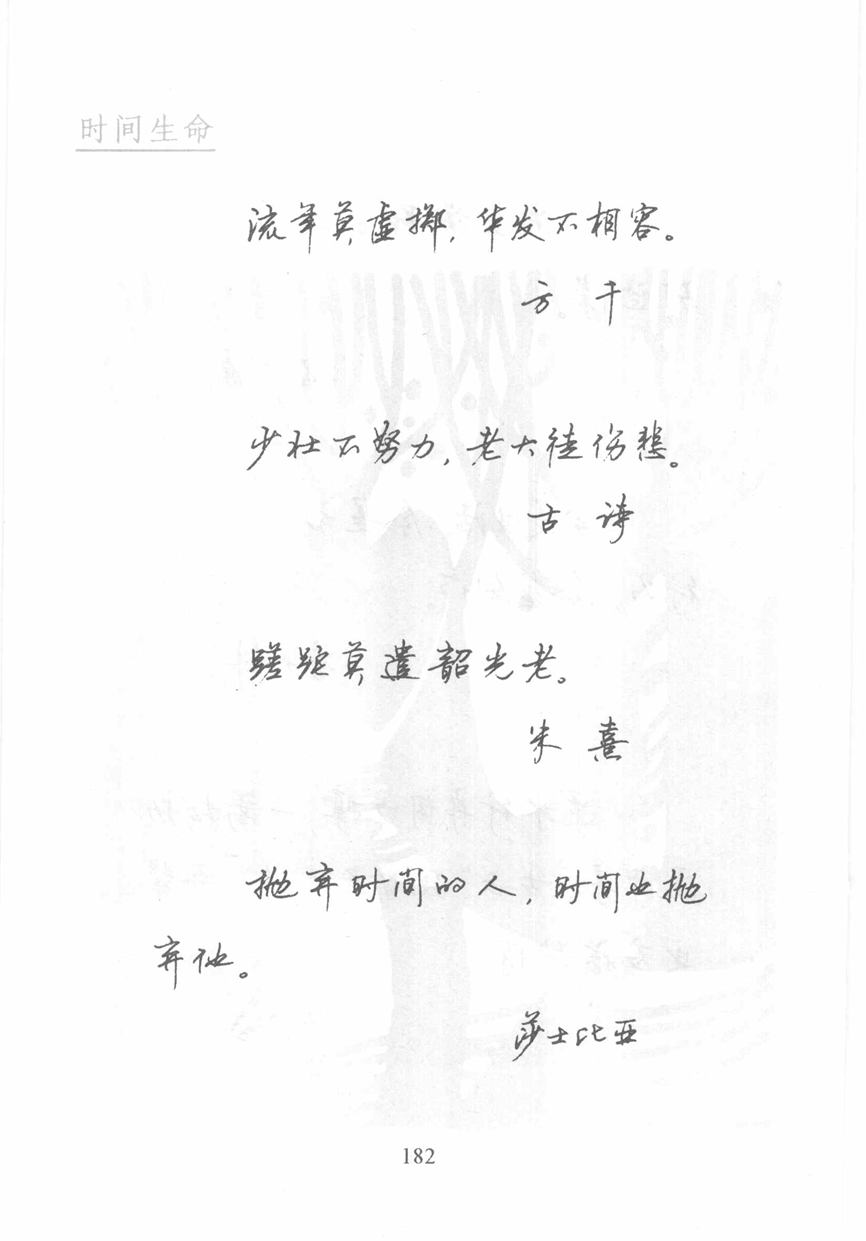 时间生命
流年莫虚掷，华发不相容。
方 干
少壮不努力，老大徒伤悲。
古 诗
蹉跎莫遣韶光老。
朱 熹
抛弃时间的人，时间也抛
弃他。
莎士比亚
182